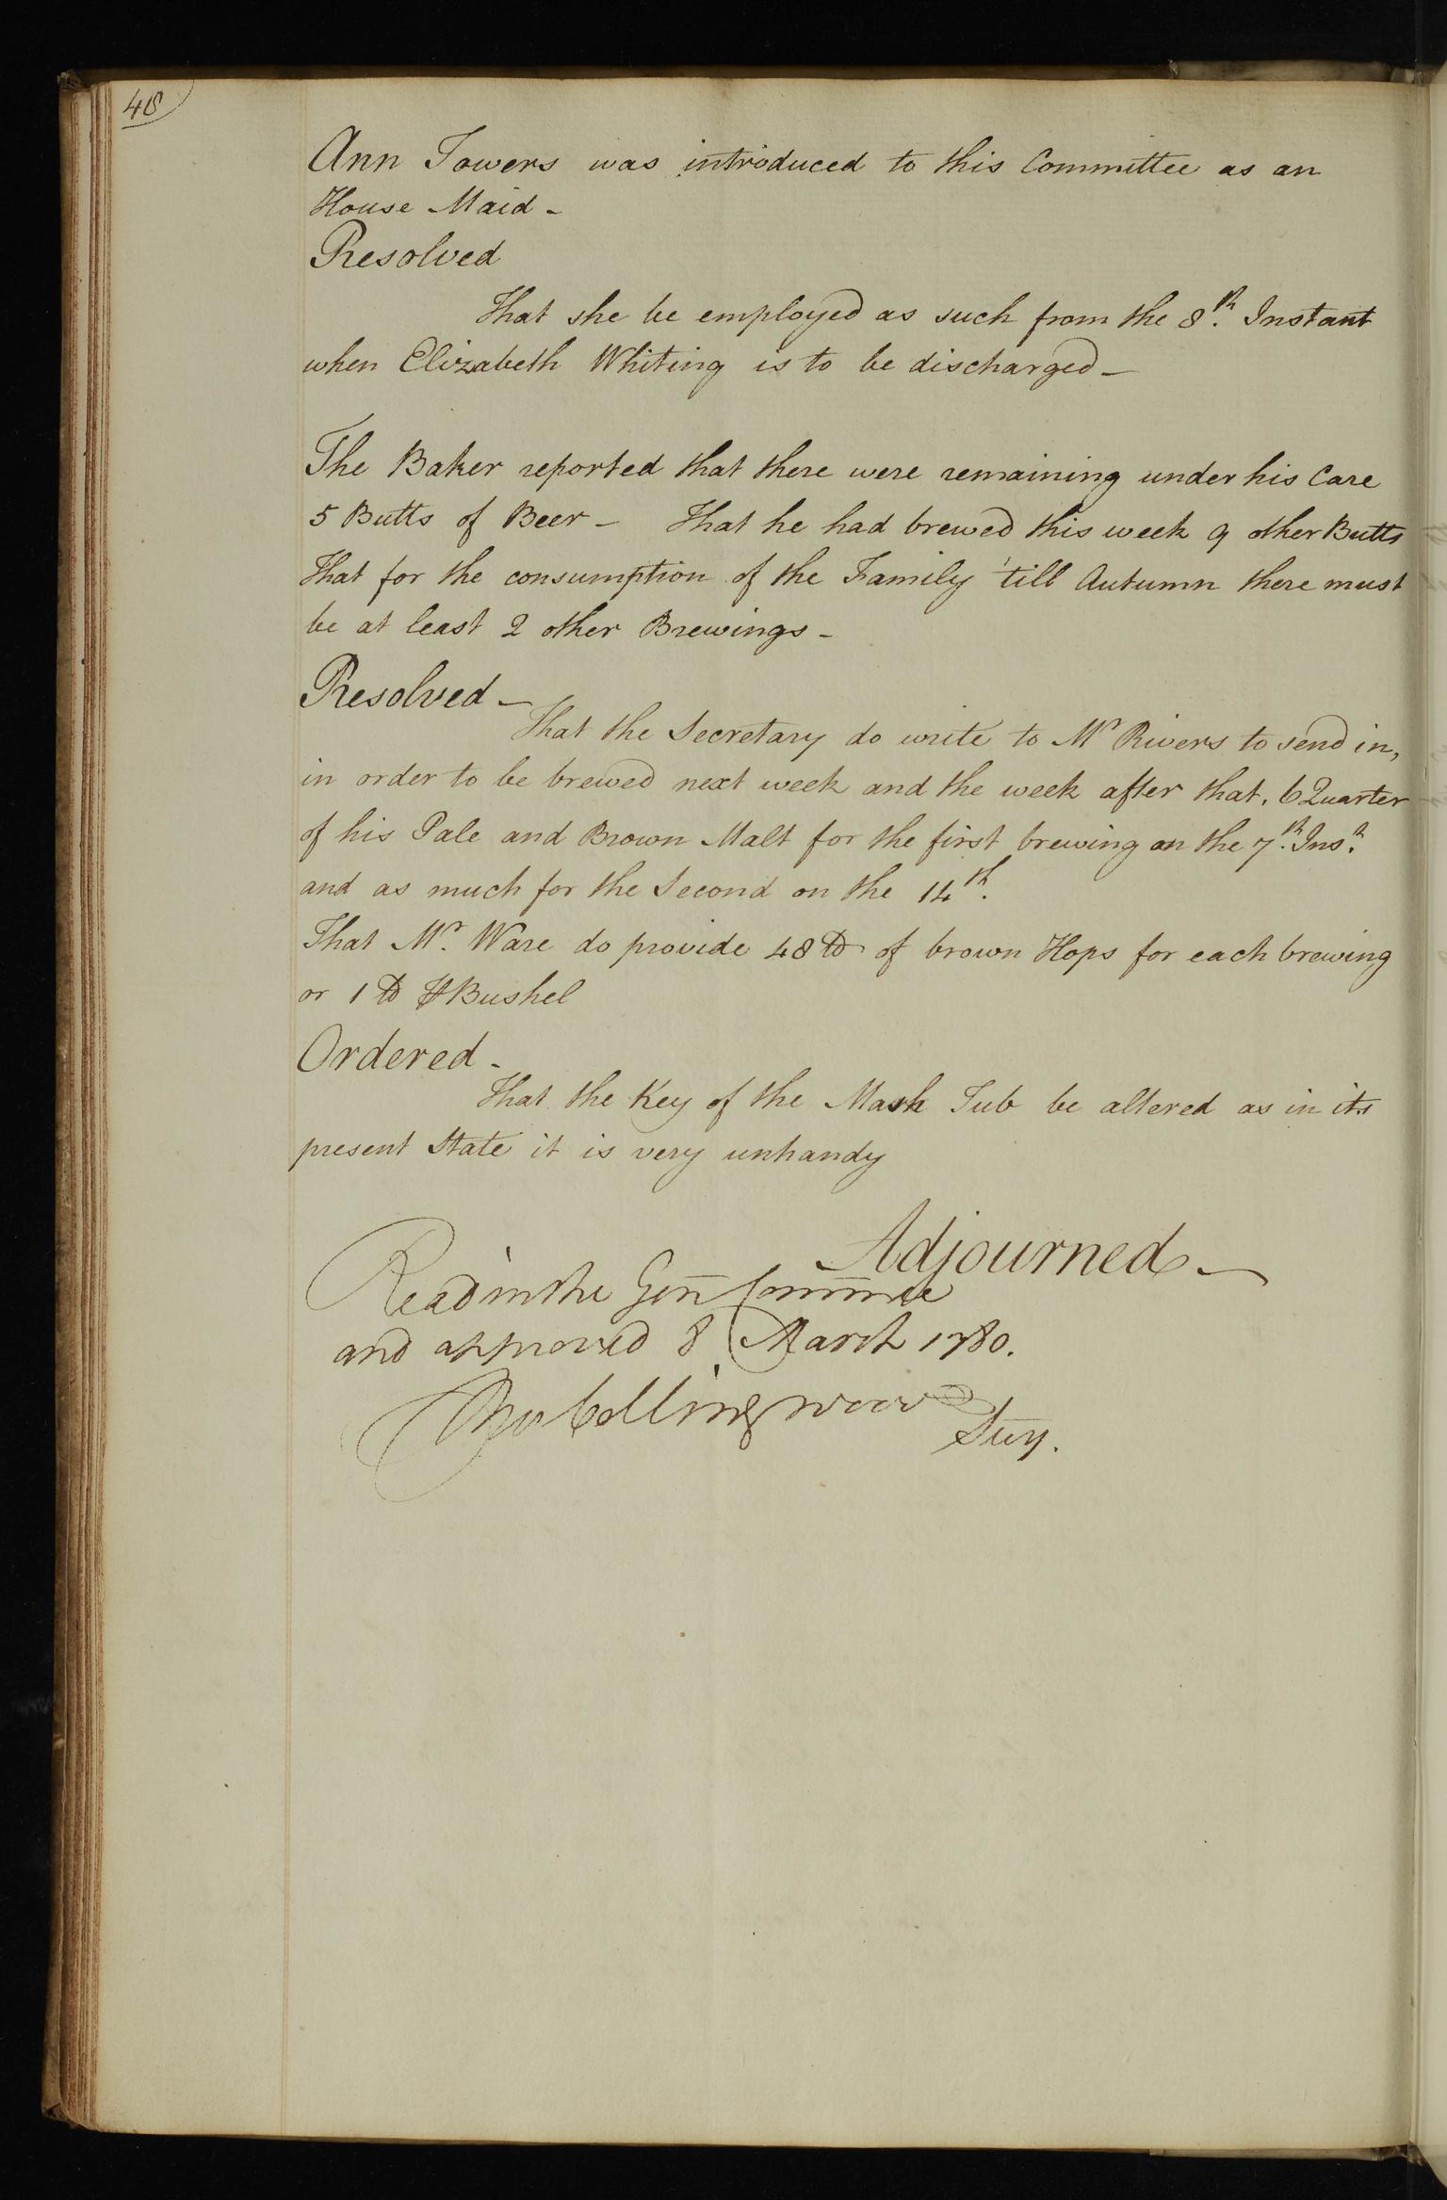 48
Ann Towers was introduced to this Committee as an
House Maid -
Resolved
That she be employed as such from the 8th. Instant
when Elizabeth Whiting is to be discharged -
The Baker reported that there were remaining under his Care
5 Butts of Beer - That he had brewed this week 9 other Butts
That for the consumption of the Family 'till Autumn there must
be at least 2 other Brewings -
Resolved -
That the Secretary do write to Mr Rivers to send in,
in order to be brewed next week and the week after that, 6 Quarter
of his Pale and Brown Malt for the first brewing on the 7th. Inst.
and as much for the Second on the 14th.
That Mr. Ware do provide 48 lb of brown Hops for each brewing
or 1 lb ⅌ Bushel
Ordered -
That the Key of the Mash Tub be altered as in its
present State it is very unhandy
Adjourned -
Read in the Gen Committee
and approved 8 March 1780.
Tho Collingwood
Secy.